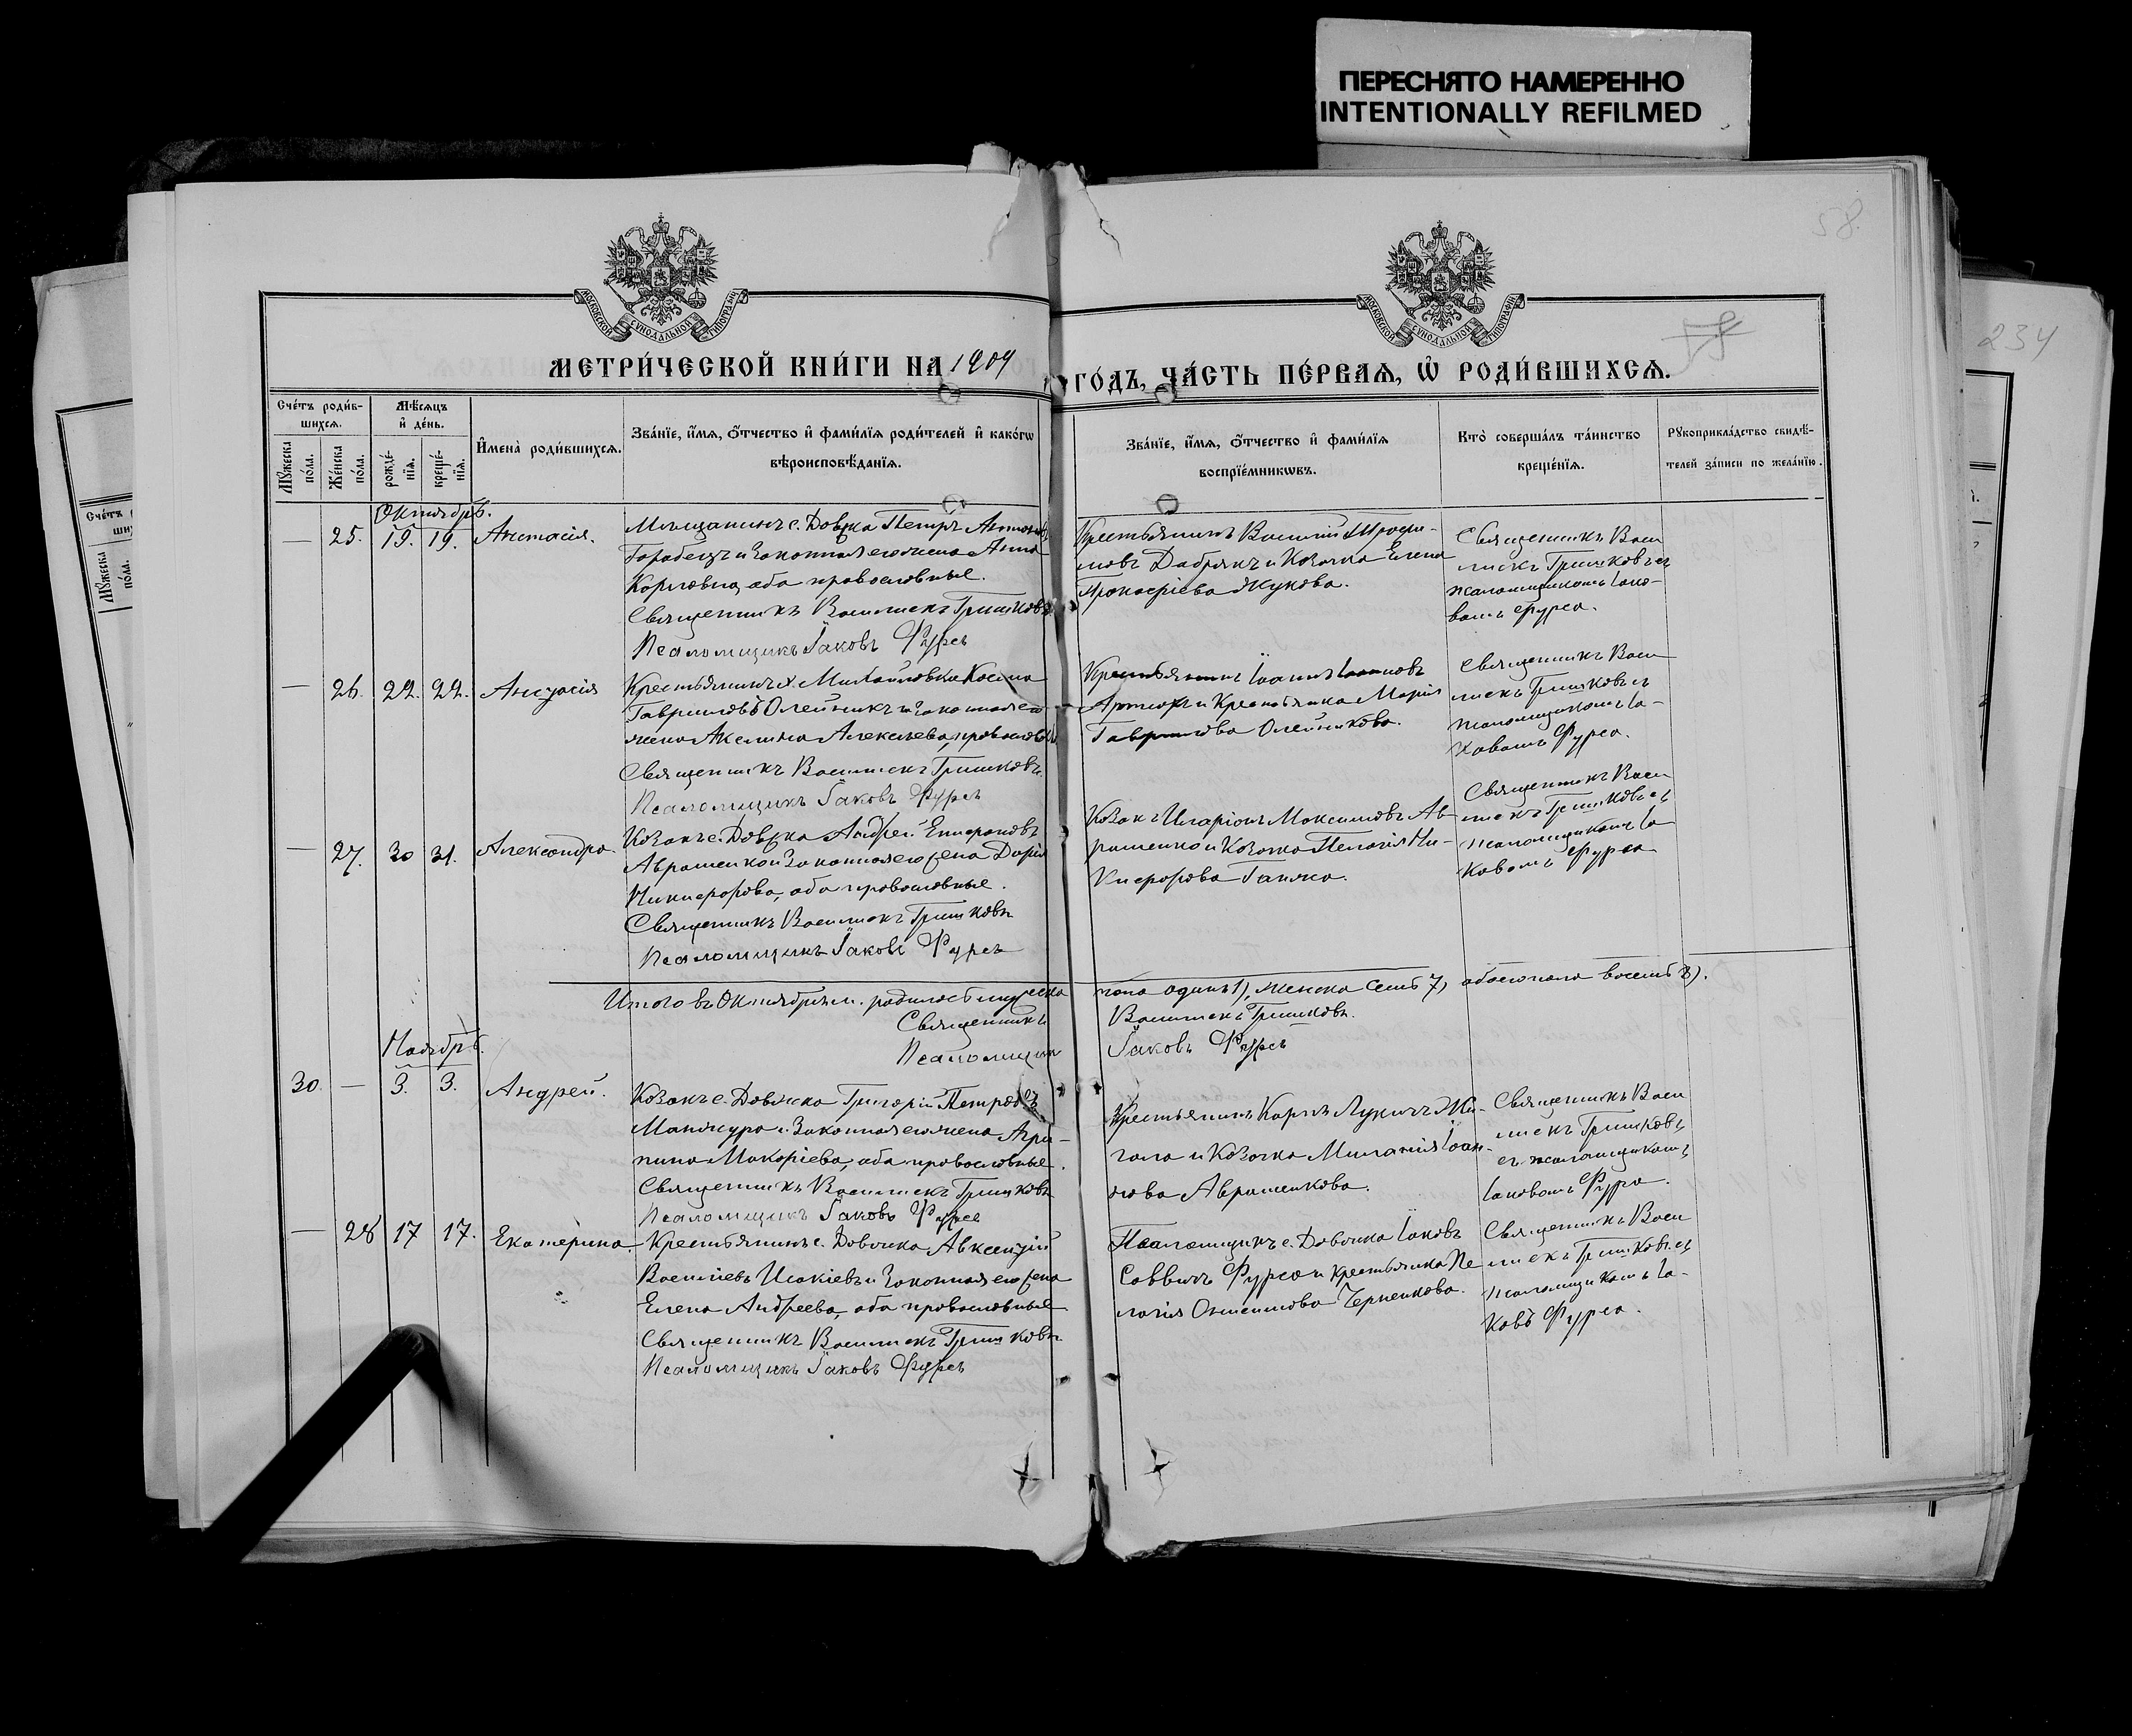 ПЕРЕСНЯТО НАМЕРЕННО
INTENTIONALLY REFILMED
58.
234
МОСКОВСКОЙ СѴНОДАЛЬНОЙ ТИПОГРАФІИ
МОСКОВСКОЙ СѴНОДАЛЬНОЙ ТИПОГРАФІИ
МЕТРИ́ЧЕСКОЙ КНИ́ГИ НА 1909
ГО́ДЪ, ЧА́СТЬ ПЕ́РВАѦ, Ѡ҆ РОДИ́ВШИХСѦ.
Сче́тъ роди́в-
шихсѧ.
Мѣ́сѧцъ
и҆ де́нь.
Мꙋ́жеска
по́ла.
Же́нска
по́ла.
рожде́-
нїѧ.
креще́-
нїѧ.
И҆мена̀ роди́вшихсѧ.
Зва́нїе, и҆́мѧ, ѻ҆́тчество и҆ фами́лїѧ роди́телей и҆ како́гѡ
вѣроисповѣ́данїѧ.
Зва́нїе, и҆́мѧ, ѻ҆́тчество и҆ фами́лїѧ
воспрїе́мникѡвъ.
Кто̀ соверша́лъ та́инство
креще́нїѧ.
Рꙋкоприкла́дство свидѣ́-
телей за́писи по жела́нїю.
Октябрь.
— 25. 19. 19. Анастасія.
Мѣщанинъ с. Довжка Петръ Антоновъ
Горобецъ и законная его жена Анна
Карловна, оба православные.
Священникъ Василискъ Гришковъ
Псаломщикъ Іаковъ Фурса
Крестьянинъ Василій Трофи-
мовъ Добрякъ и Козачка Елена
Прокофіева Жукова.
Священникъ Васи
лискъ Гришковъ съ
псаломщикомъ Іако-
вомъ Фурса.
— 26. 22. 22. Анисія
Крестьянинъ х. Михайловки Косьма
Гавриловъ Олейникъ и законная его
жена Акилина Алексѣева, православн
Священникъ Василискъ Гришковъ.
Псаломщикъ Іаковъ Фурса
Крестьянинъ Іоаннъ Іоанновъ
и Крестьянка Марія
Гаврилова Олейникова.
Священникъ Васи
лискъ Гришковъ съ
псаломщикомъ Іа-
ковомъ Фурса.
— 27. 30 31. Александра.
Козакъ с. Довжка Андрей Епифановъ
Авраменко и законная его жена Дарія
Никифорова, оба православные.
Священникъ Василискъ Гришковъ
Псаломщикъ Іаковъ Фурса
Козакъ Иларіонъ Максимовъ Ав-
раменко и Козачка Пелагія Ни-
кифорова
Священникъ Васи
лискъ Гришковъ съ
псаломщикомъ Іа
ковомъ Фурса
Итого въ Октябрѣ м. родилось мужеска
пола одинъ 1), женска семь 7), обоего пола восемь 8).
Священникъ
Василискъ Гришковъ.
Псаломщикъ
Іаковъ Фурса
Ноябрь.
30. — 3. 3. Андрей.
Козакъ с. Довжка Григорій Петровъ
Манжура и законная его жена Агри-
пина Макаріева, оба православные.
Священникъ Василискъ Гришковъ
Псаломщикъ Іаковъ Фурса
Крестьянинъ Карпъ Лукичъ Жи-
гала и Козачка Миланія Іоан-
нова Авраменкова.
Священникъ Васи
лискъ Гришковъ
съ псаломщикомъ
Іаковомъ Фурса.
— 28 17 17. Екатерина.
Крестьянинъ с. Довжика Авксентій
Васильевъ Исакіевъ и законная его жена
Елена Андреева, оба православные
Священникъ Василискъ Гришковъ
Псаломщикъ Іаковъ Фурса
Псаломщикъ с. Довжика Іаковъ
Саввичъ Фурса и Крестьянка Пе
лагія Онисимова Черненкова.
Священникъ Васи
лискъ Гришковъ съ
псаломщикомъ Іа-
ковъ Фурса.